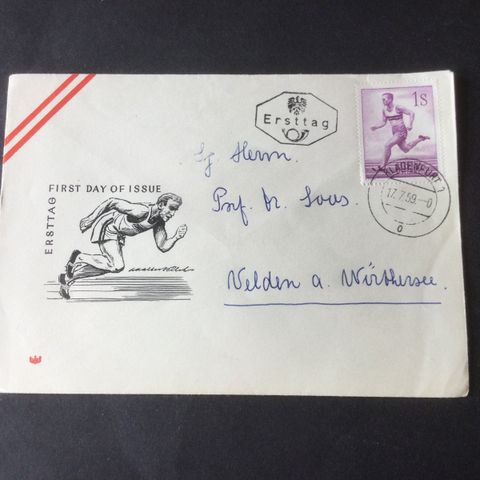 Ersttag
1S
KLAGENFURT 2
17.7.59.-0
o
FIRST DAY OF ISSUE
ERSTTAG
Herrn
Prof. Dr.
Velden a. Wörthersee.